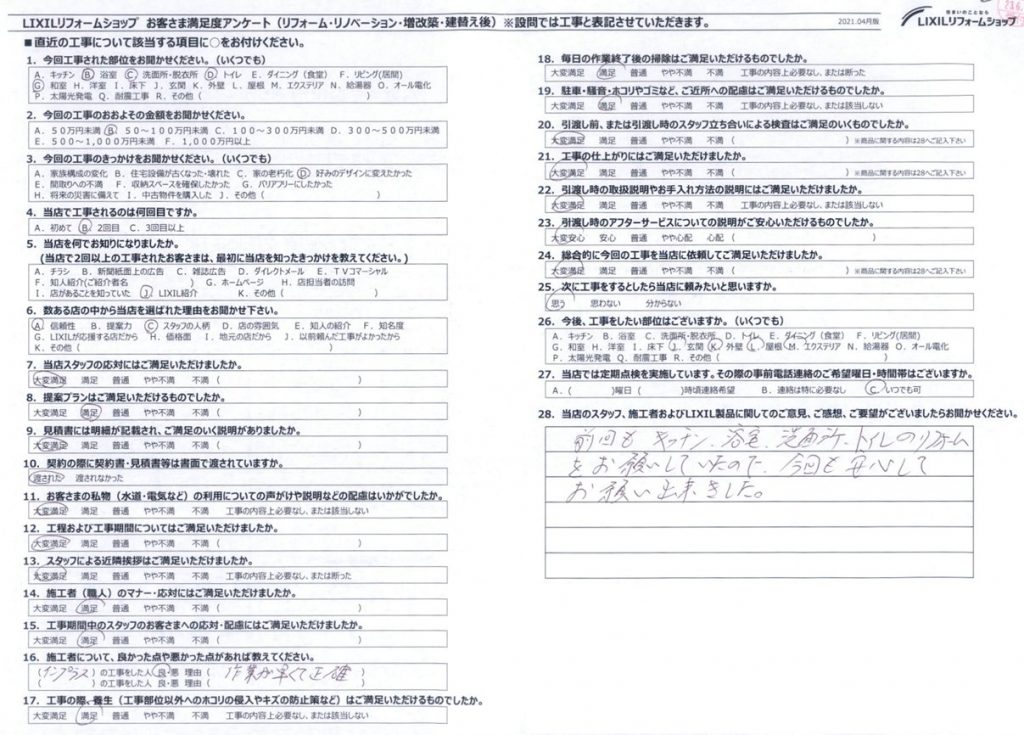 LIXILリフォームショップ お客さま満足度アンケート（リフォーム・リノベーション・増改築・建替え後）※設問では工事と表記させていただきます。
2021.04月版
住まいのことなら
LIXILリフォームショップ
■直近の工事について該当する項目に○をお付けください。
1．今回工事された部位をお聞かせください。（いくつでも）
A．キッチン B．浴室 C．洗面所・脱衣所 D．トイレ E．ダイニング（食堂） F．リビング(居間)
G．和室 H．洋室 I．床下 J．玄関 K．外壁 L．屋根 M．エクステリア N．給湯器 O．オール電化
P．太陽光発電 Q．耐震工事 R．その他（ ）
2．今回の工事のおおよその金額をお聞かせください。
A．50万円未満 B．50～100万円未満 C．100～300万円未満 D．300～500万円未満
E．500～1,000万円未満 F．1,000万円以上
3．今回の工事のきっかけをお聞かせください。（いくつでも）
A．家族構成の変化 B．住宅設備が古くなった・壊れた C．家の老朽化 D．好みのデザインに変えたかった
E．間取りへの不満 F．収納スペースを確保したかった G．バリアフリーにしたかった
H．将来の災害に備えて I．中古物件を購入した J．その他（ ）
4．当店で工事されるのは何回目ですか。
A．初めて B．2回目 C．3回目以上
5．当店を何でお知りになりましたか。
(当店で2回以上の工事されたお客さまは、最初に当店を知ったきっかけを教えてください。)
A．チラシ B．新聞紙面上の広告 C．雑誌広告 D．ダイレクトメール E．TVコマーシャル
F．知人紹介(ご紹介者名 ) G．ホームページ H．店担当者の訪問
I．店があることを知っていた J．LIXIL紹介 K．その他（ ）
6．数ある店の中から当店を選ばれた理由をお聞かせ下さい。
A．信頼性 B．提案力 C．スタッフの人柄 D．店の雰囲気 E．知人の紹介 F．知名度
G．LIXILが応援する店だから H．価格面 I．地元の店だから J．以前頼んだ工事がよかったから
K．その他（ ）
7．当店スタッフの応対にはご満足いただけましたか。
大変満足 満足 普通 やや不満 不満（ ）
8．提案プランはご満足いただけるものでしたか。
大変満足 満足 普通 やや不満 不満（ ）
9．見積書には明細が記載され、ご満足のいく説明がありましたか。
大変満足 満足 普通 やや不満 不満（ ）
10．契約の際に契約書・見積書等は書面で渡されていますか。
渡された 渡されなかった
11．お客さまの私物（水道・電気など）の利用についての声がけや説明などの配慮はいかがでしたか。
大変満足 満足 普通 やや不満 不満 工事の内容上必要なし、または該当しない
12．工程および工事期間についてはご満足いただけましたか。
大変満足 満足 普通 やや不満 不満（ ）
13．スタッフによる近隣挨拶はご満足いただけましたか。
大変満足 満足 普通 やや不満 不満 工事の内容上必要なし、または断った
14．施工者（職人）のマナー・応対にはご満足いただけましたか。
大変満足 満足 普通 やや不満 不満（ ）
15．工事期間中のスタッフのお客さまへの応対・配慮にはご満足いただけましたか。
大変満足 満足 普通 やや不満 不満（ ）
16．施工者について、良かった点や悪かった点があれば教えてください。
（インプラス）の工事をした人 良・悪 理由（ 作業が早くて正確 ）
（ ）の工事をした人 良・悪 理由（ ）
17．工事の際、養生（工事部位以外へのホコリの侵入やキズの防止策など）はご満足いただけるものでしたか。
大変満足 満足 普通 やや不満 不満 工事の内容上必要なし、または該当しない
18．毎日の作業終了後の掃除はご満足いただけるものでしたか。
大変満足 満足 普通 やや不満 不満 工事の内容上必要なし、または断った
19．駐車・騒音・ホコリやゴミなど、ご近所への配慮はご満足いただけるものでしたか。
大変満足 満足 普通 やや不満 不満 工事の内容上必要なし、または該当しない
20．引渡し前、または引渡し時のスタッフ立ち合いによる検査はご満足のいくものでしたか。
大変満足 満足 普通 やや不満 不満（ ）※商品に関する内容は28へご記入下さい
21．工事の仕上がりにはご満足いただけましたか。
大変満足 満足 普通 やや不満 不満（ ）※商品に関する内容は28へご記入下さい
22．引渡し時の取扱説明やお手入れ方法の説明にはご満足いただけましたか。
大変満足 満足 普通 やや不満 不満 工事の内容上必要なし、または該当しない
23．引渡し時のアフターサービスについての説明がご安心いただけるものでしたか。
大変安心 安心 普通 やや心配 心配（ ）
24．総合的に今回の工事を当店に依頼してご満足いただけましたか。
大変満足 満足 普通 やや不満 不満（ ）※商品に関する内容は28へご記入下さい
25．次に工事をするとしたら当店に頼みたいと思いますか。
思う 思わない 分からない
26．今後、工事をしたい部位はございますか。（いくつでも）
A．キッチン B．浴室 C．洗面所・脱衣所 D．トイレ E．ダイニング（食堂） F．リビング(居間)
G．和室 H．洋室 I．床下 J．玄関 K．外壁 L．屋根 M．エクステリア N．給湯器 O．オール電化
P．太陽光発電 Q．耐震工事 R．その他（ ）
27．当店では定期点検を実施しています。その際の事前電話連絡のご希望曜日・時間帯はございますか。
A．（ ）曜日（ ）時頃連絡希望 B．連絡は特に必要なし C．いつでも可
28．当店のスタッフ、施工者およびLIXIL製品に関してのご意見、ご感想、ご要望がございましたらお聞かせください。
前回も キッチン、浴室、洗面所、トイレのリフォーム
をお願いしていたので、今回も安心して
お願い出来ました。